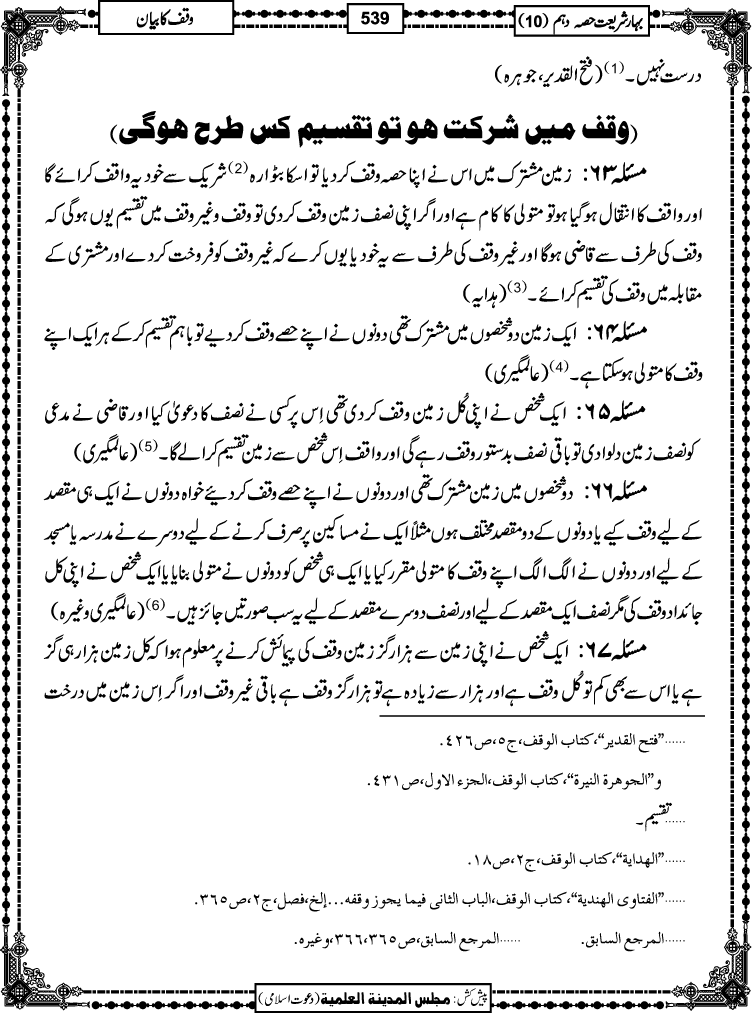 بہار شریعت حصہ دہم (10)
539
وقف کا بیان
درست نہیں۔(1) (فتح القدیر، جوہرہ)
(وقف میں شرکت ہو تو تقسیم کس طرح ہوگی)
مسئلہ ۶۳: زمین مشترک میں اس نے اپنا حصہ وقف کردیا تو اسکا بٹوارہ(2) شریک سے خود یہ واقف کرائے گا
اور واقف کا انتقال ہوگیا ہو تو متولی کا کام ہے اور اگر اپنی نصف زمین وقف کردی تو وقف وغیر وقف میں تقسیم یوں ہوگی کہ
وقف کی طرف سے قاضی ہوگا اور غیر وقف کی طرف سے یہ خود یا یوں کرے کہ غیر وقف کو فروخت کردے اور مشتری کے
مقابلہ میں وقف کی تقسیم کرائے۔(3) (ہدایہ)
مسئلہ ۶۴: ایک زمین دو شخصوں میں مشترک تھی دونوں نے اپنے حصے وقف کردیے تو باہم تقسیم کرکے ہر ایک اپنے
وقف کا متولی ہوسکتا ہے۔(4) (عالمگیری)
مسئلہ ۶۵: ایک شخص نے اپنی کُل زمین وقف کردی تھی اِس پر کسی نے نصف کا دعویٰ کیا اور قاضی نے مدعی
کو نصف زمین دلوا دی تو باقی نصف بدستور وقف رہے گی اور واقف اِس شخص سے زمین تقسیم کرالے گا۔(5) (عالمگیری)
مسئلہ ۶۶: دو شخصوں میں زمین مشترک تھی اور دونوں نے اپنے حصے وقف کردیئے خواہ دونوں نے ایک ہی مقصد
کے لیے وقف کیے یا دونوں کے دو مقصد مختلف ہوں مثلاً ایک نے مساکین پر صرف کرنے کے لیے دوسرے نے مدرسہ یا مسجد
کے لیے اور دونوں نے الگ الگ اپنے وقف کا متولی مقرر کیا یا ایک ہی شخص کو دونوں نے متولی بنایا یا ایک شخص نے اپنی کل
جائداد وقف کی مگر نصف ایک مقصد کے لیے اور نصف دوسرے مقصد کے لیے یہ سب صورتیں جائز ہیں۔(6) (عالمگیری وغیرہ)
مسئلہ ۶۷: ایک شخص نے اپنی زمین سے ہزار گز زمین وقف کی پیمائش کرنے پر معلوم ہوا کہ کل زمین ہزار ہی گز
ہے یا اس سے بھی کم تو کُل وقف ہے اور ہزار سے زیادہ ہے تو ہزار گز وقف ہے باقی غیر وقف اور اگر اِس زمین میں درخت
......”فتح القدیر“،کتاب الوقف،ج٥،ص٤٢٦.
و”الجوهرة النيرة“،کتاب الوقف،الجزء الاول،ص٤٣١.
......تقسیم۔
......”الهداية“،کتاب الوقف،ج٢،ص١٨.
......”الفتاوى الهندية“،کتاب الوقف،الباب الثانی فیما یجوز وقفه...إلخ،فصل،ج٢،ص٣٦٥.
......المرجع السابق. ......المرجع السابق،ص٣٦٥،٣٦٦،وغیرہ.
پیش کش: مجلس المدینة العلمیة (دعوت اسلامی)